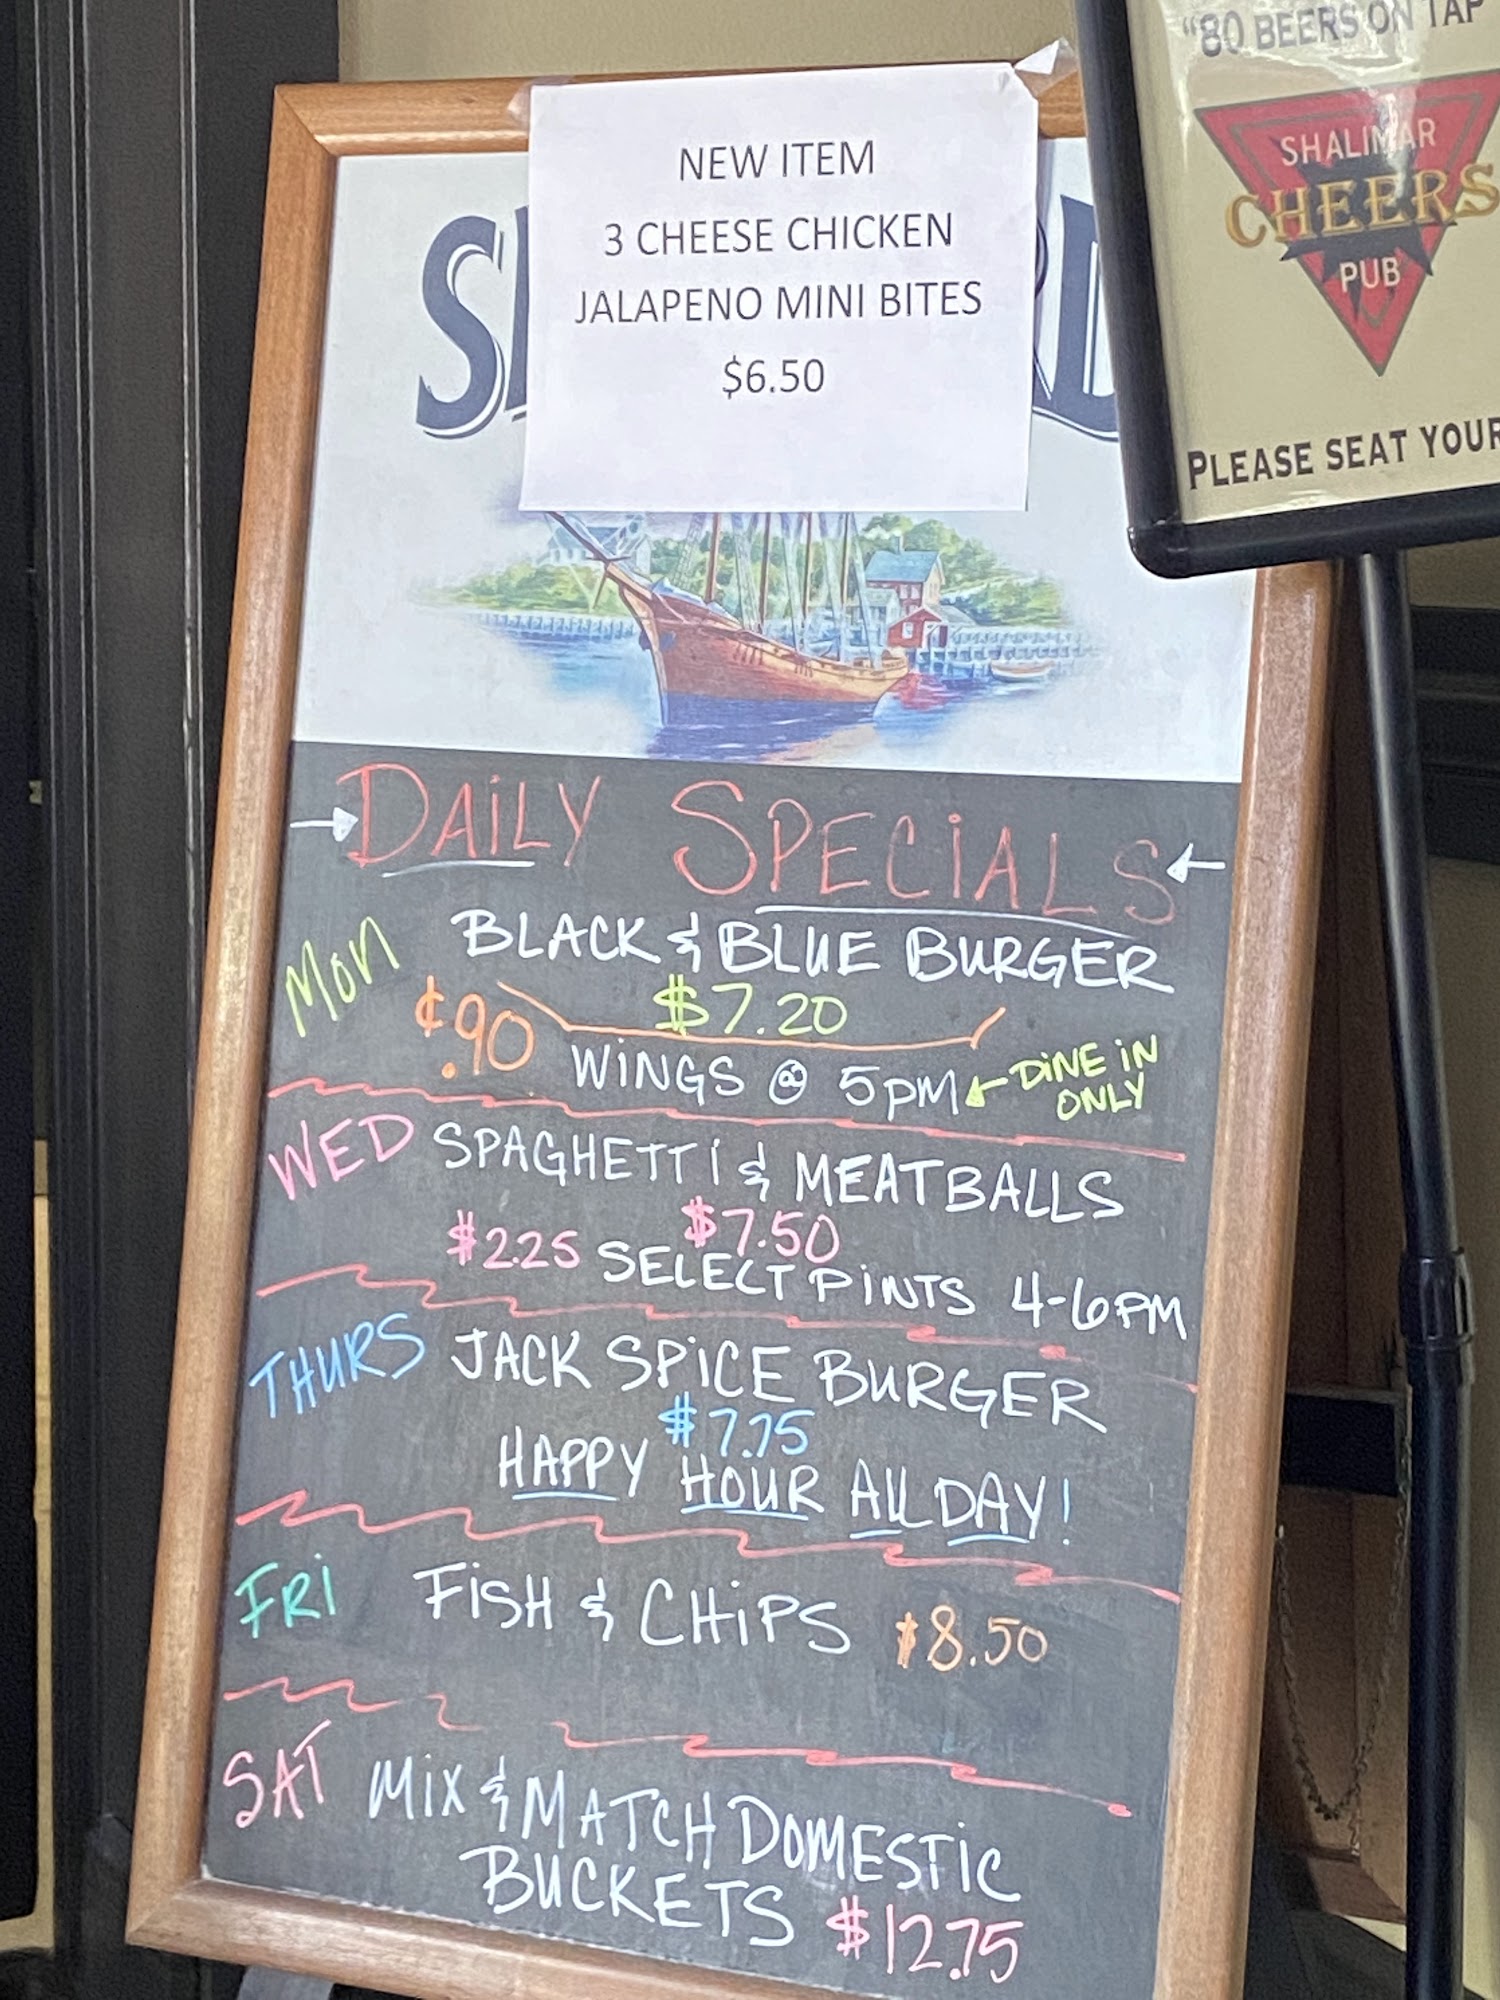 NEW ITEM
3 CHEESE CHICKEN
JALAPENO MINI BITES
$6.50
"80 BEERS ON TAP
SHALIMAR
CHEERS
PUB
PLEASE SEAT YOUR
DAILY SPECIALS
MON BLACK & BLUE BURGER
$7.20
¢.90 WINGS @ 5PM ← DINE IN ONLY
WED SPAGHETTI & MEATBALLS
$7.50
$2.25 SELECT PINTS 4-6PM
THURS JACK SPICE BURGER
$7.75
HAPPY HOUR ALL DAY!
FRI FISH & CHIPS $8.50
SAT MIX & MATCH DOMESTIC
BUCKETS $12.75